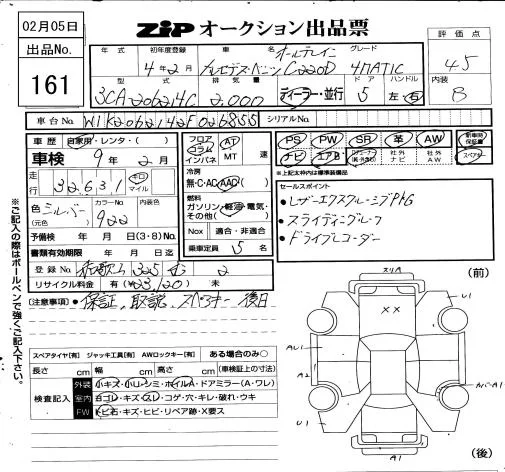 02月05日
ZIP オークション出品票
出品No.
161
評価点
4.5
内装
B
年式 初年度登録 車名 グレード
4年2月 メルセデス・ベンツ オールテレイン C220D 4MATIC
型式 排気量 ドア ハンドル
3CA-206214C 2,000 ディーラー・並行 5 左・右
車台No. W1K2062142F026855 シリアルNo.
車歴 自家用・レンタ・( )
車検 9年 2月
走行 32,631 キロ マイル
色 シルバー カラーNo. 922 内装色
(元色)
予備検 年 月 日(3・8)No.
書類有効期限 年 月 日迄
登録No 和歌山 325 2
リサイクル料金 有(¥23,120) 未
フロア コラム インパネ AT MT 速
冷房 無・C・AC・AAC
燃料 ガソリン・軽油・電気・その他( )
Nox 適合・非適合
乗車定員 5 名
PS PW SR 革 AW 新車時保証書
ナビ エアB 社外ナビ 社外AW スペアキー
※上記太枠内は標準装備品
セールスポイント
・レザーエクスクルーシブPKG
・スライディングルーフ
・ドライブレコーダー
(注意事項)・保証、取説、スペアキー 後日
※ご記入の際はボールペンで強くご記入下さい。
スペアタイヤ[有] ジャッキ工具[有] AWロックキー[有] ある場合のみ○
長さ cm 幅 cm 高さ cm (車検証上の寸法)
検査記入
外装 小キズ・小凹・シミ・ホイルA・ドアミラー(A・ワレ)
室内 ヨゴレ・キズ・スレ・コゲ・穴・キレ・破れ・ウキ
FW トビ石・キズ・ヒビ・リペア跡・X要ス
(前)
スリA
××
U1
U1
AU1
A2
A1
(後)